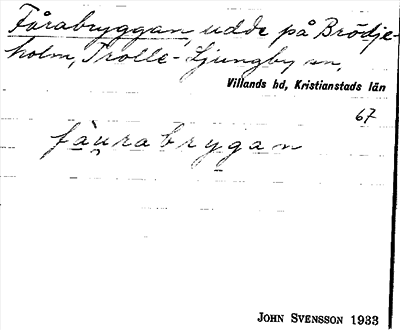 Fårabryggan, udde på Brödje-
holm, Trolle-Ljungby sn,
Villands hd, Kristianstads län
67
fàu̯rabrygan
JOHN SVENSSON 1933